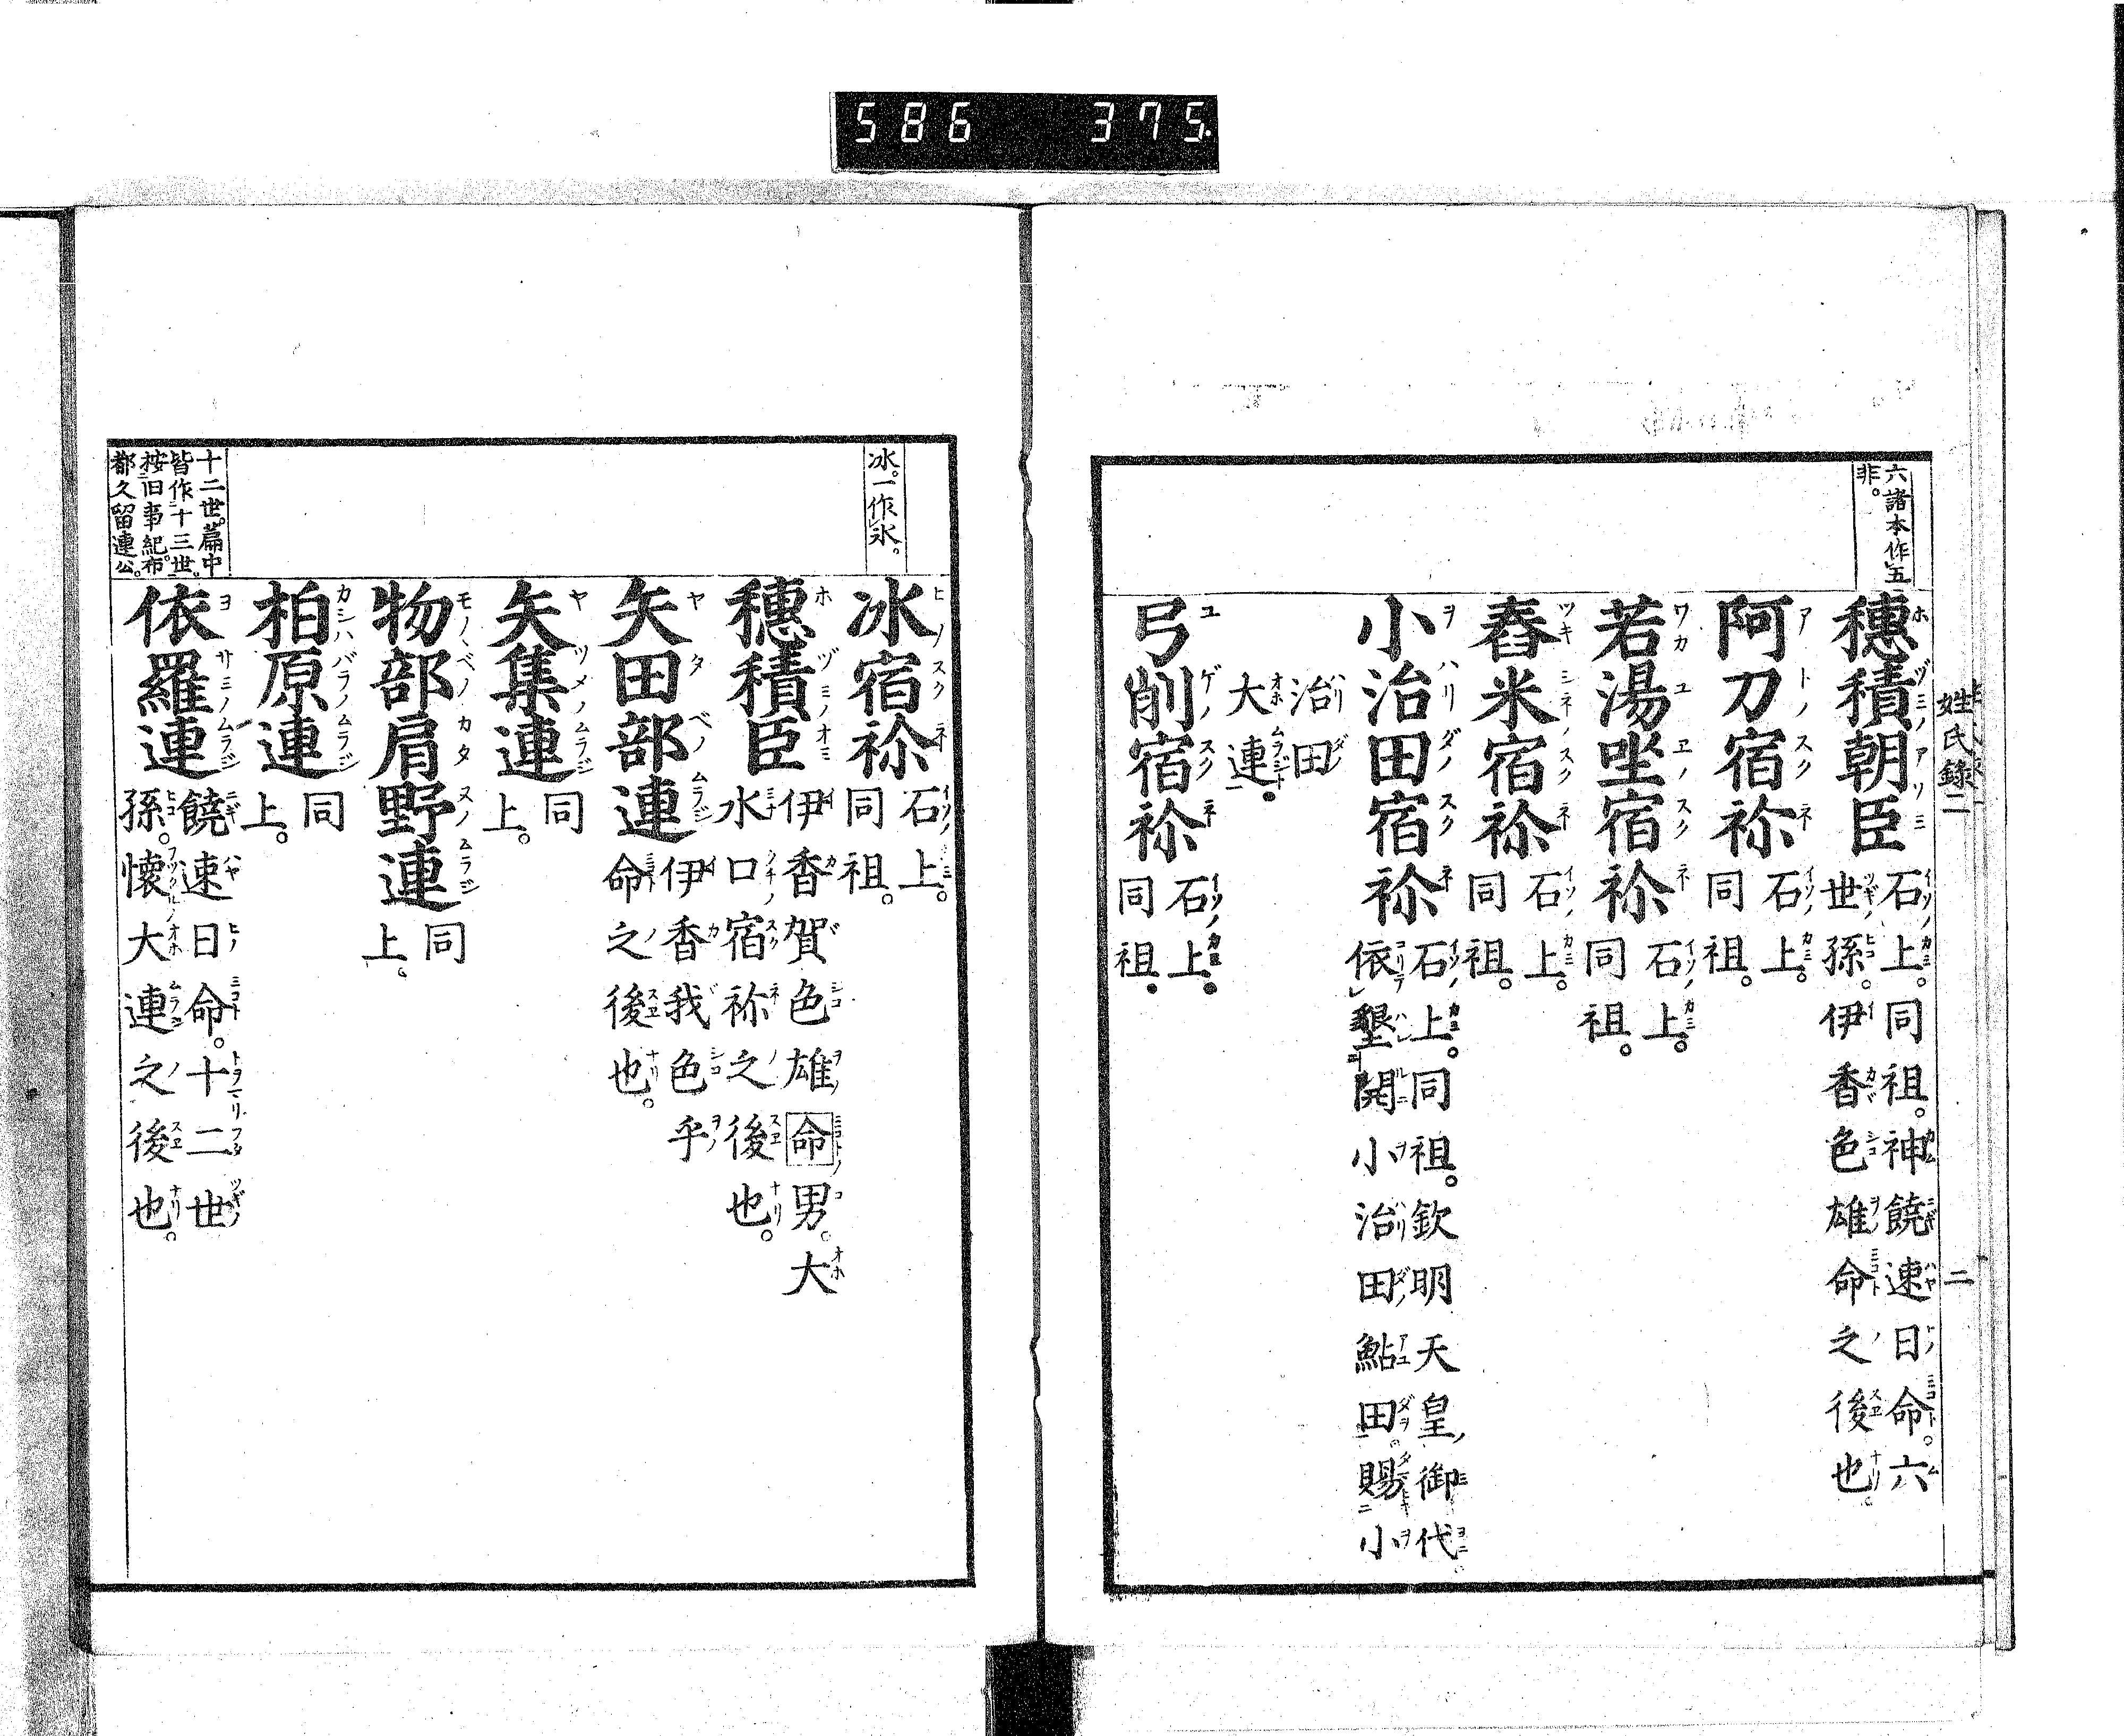 586 375.
姓氏錄二
二
六諸本作五
非。
穗積朝臣
石上。同祖。神饒速日命。六
世孫。伊香色雄命之後也。
阿刀宿祢
石上。
同祖。
若湯坐宿祢
石上。
同祖。
舂米宿祢
石上。
同祖。
小治田宿祢
石上。同祖。欽明天皇御代。
依墾開小治田鮎田。賜小
治田
大連。
弓削宿祢
石上。
同祖。
冰。一作氷。
冰宿祢
石上。
同祖。
穗積臣
伊香賀色雄命男。大
水口宿祢之後也。
矢田部連
伊香我色乎
命之後也。
矢集連
同
上。
物部肩野連
同
上。
柏原連
同
上。
十二世。篇中
皆作十三世。
按旧事紀。布
都久留連公。
依羅連
饒速日命。十二世
孫。懷大連之後也。